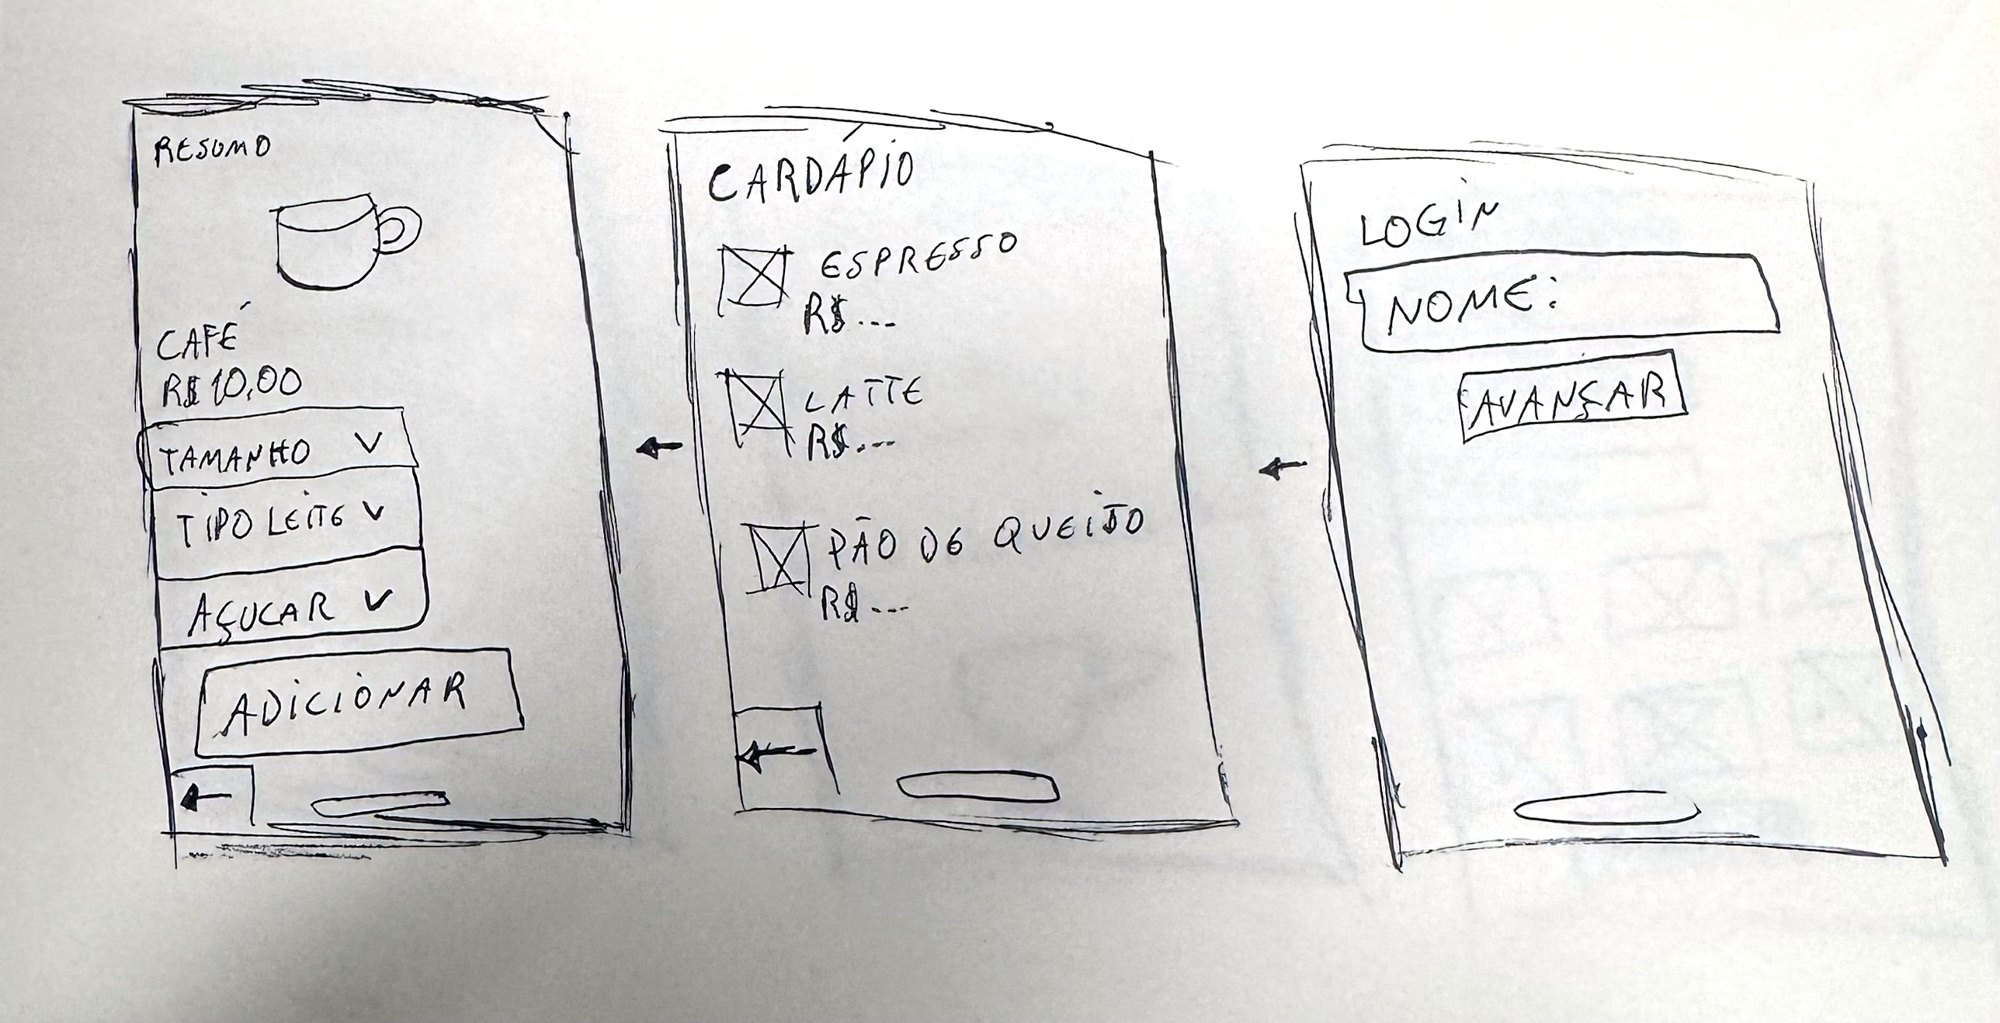 RESUMO
CAFÉ
R$ 10,00
TAMANHO
TIPO LEITE
AÇUCAR
ADICIONAR
CARDÁPIO
ESPRESSO
R$...
LATTE
R$...
PÃO DE QUEIJO
R$...
LOGIN
NOME:
AVANÇAR